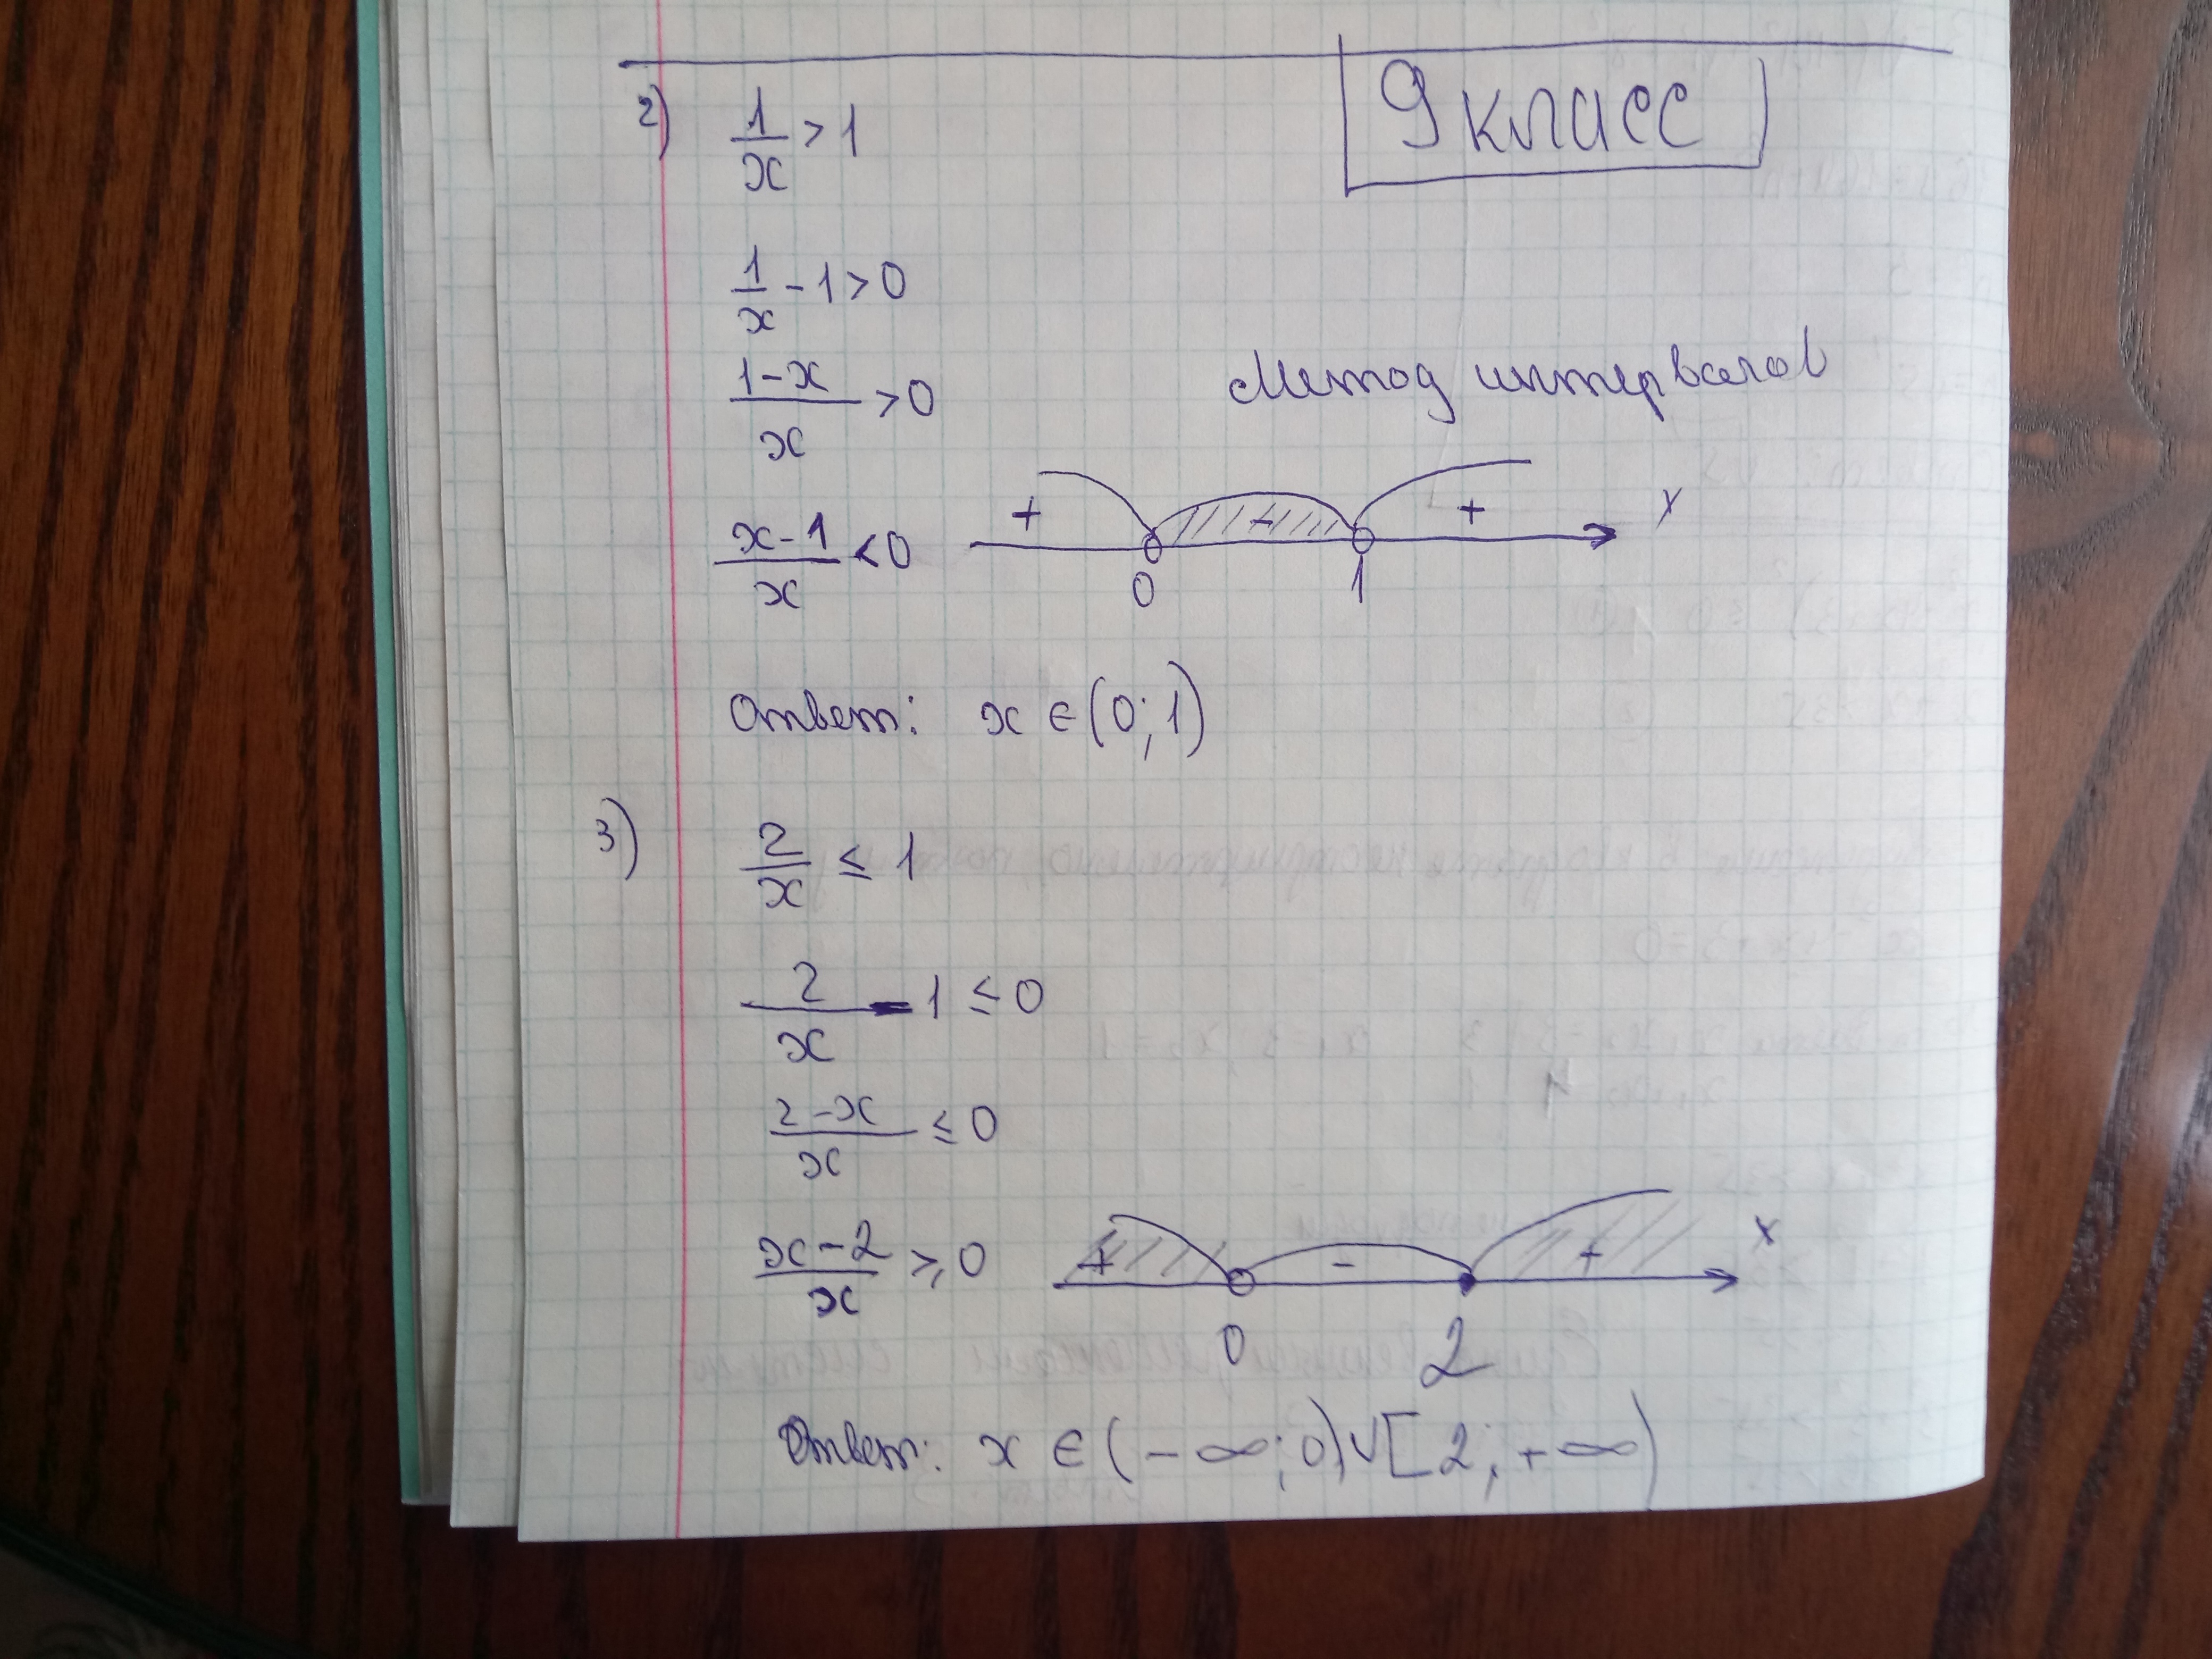 9 класс
2) 1/x > 1
1/x - 1 > 0
1-x/x > 0
Метод интервалов
x-1/x < 0
+ - + x
0 1
Ответ: x ∈ (0; 1)
3) 2/x ≤ 1
2/x - 1 ≤ 0
2-x/x ≤ 0
x-2/x ≥ 0
+ - + x
0 2
Ответ: x ∈ (-∞; 0) ∪ [2; +∞)